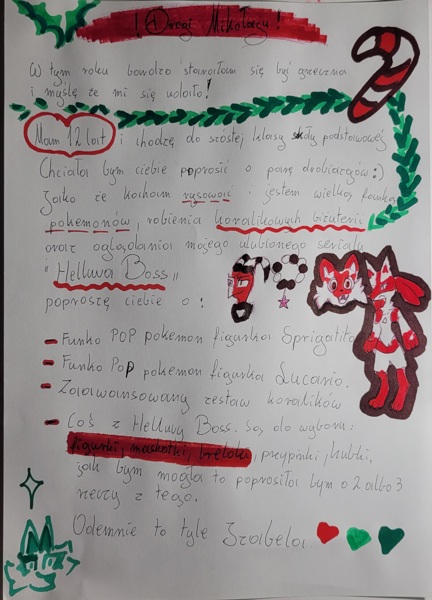 ! Drogi Mikołaju !
W tym roku bardzo starałam się być grzeczna
i myślę że mi się udało!
Mam 12 lat i chodzę do szóstej klasy szkoły podstawowej
Chciała bym ciebie poprosić o parę drobiazgów:)
Jako że kocham rysować, jestem wielką fanką
pokemonów, robienia koralikowych biżuterii
oraz oglądania mojego ulubionego serialu
"Helluva Boss"
poproszę ciebie o:
- Funko POP pokemon figurka Sprigatito
- Funko PoP pokemon figurka Lucario.
- Zaawansowany zestaw koralików
- Coś z Helluvy Boss. Są do wyboru:
figurki, maskotki, breloki, przypinki, kubki,
jak bym mogła to poprosiła bym o 2 albo 3
rzeczy z tego.
Odemnie to tyle Izabela